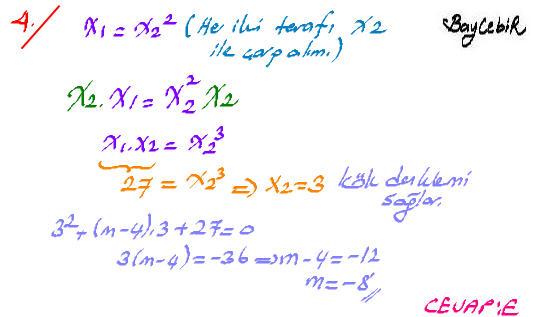 4./ x₁ = x₂² (Her iki tarafı x₂
ile çarpalım.)
BayCebiR
x₂.x₁ = x₂² x₂
x₁.x₂ = x₂³
27 = x₂³ ⇒ x₂ = 3 kök denklemi
sağlar.
3² + (m-4).3 + 27 = 0
3(m-4) = -36 ⇒ m - 4 = -12
m = -8//
CEVAP:E